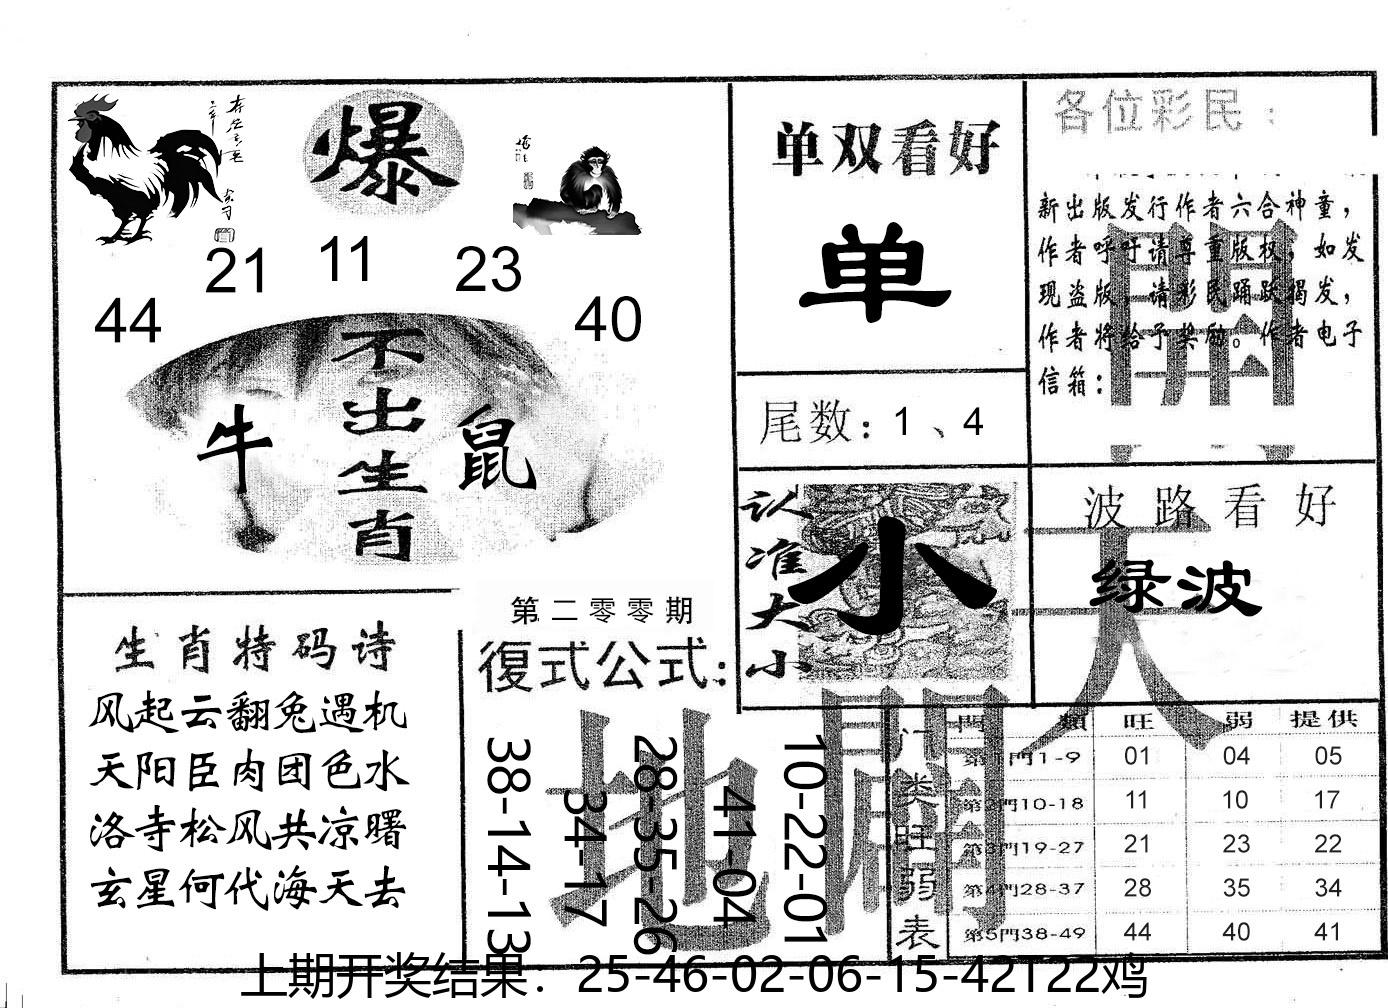 爆
21 11 23
44 40
不出生肖
牛 鼠
单双看好
单
各位彩民：
新出版发行作者六合神童，
作者呼吁请尊重版权，如发
现盗版，请彩民踊跃揭发，
作者将给予奖励。作者电子
信箱：
開
尾数：1、4
认准大小
小
波路看好
绿波
天
生肖特码诗
风起云翻兔遇机
天阳臣肉团色水
洛寺松风共凉曙
玄星何代海天去
第二零零期
復式公式：
38-14-13
34-17
28-35-26
41-04
10-22-01
地
門类旺弱表
門類 旺 弱 提供
第1門1-9 01 04 05
第2門10-18 11 10 17
第3門19-27 21 23 22
第4門28-37 28 35 34
第5門38-49 44 40 41
上期开奖结果：25-46-02-06-15-42T22鸡